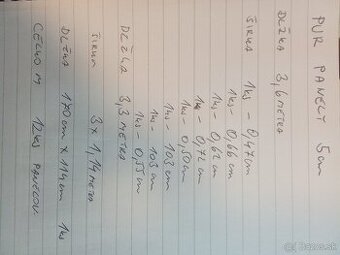 PUR PANELY 5cm
DĹŽKA 3,6 METRA
ŠÍRKA 1ks - 0,47cm
1ks - 0,66cm
1ks - 0,62cm
1ks - 0,72cm
1ks - 0,50cm
1ks - 103cm
1ks - 103cm
1ks - 0,55cm
DĹŽKA 3,3 METRA
ŠÍRKA 3 x 1,14 METRA
DĹŽKA 170cm x 114cm 1ks
CELKOM 12ks PANELOV
bazos.sk